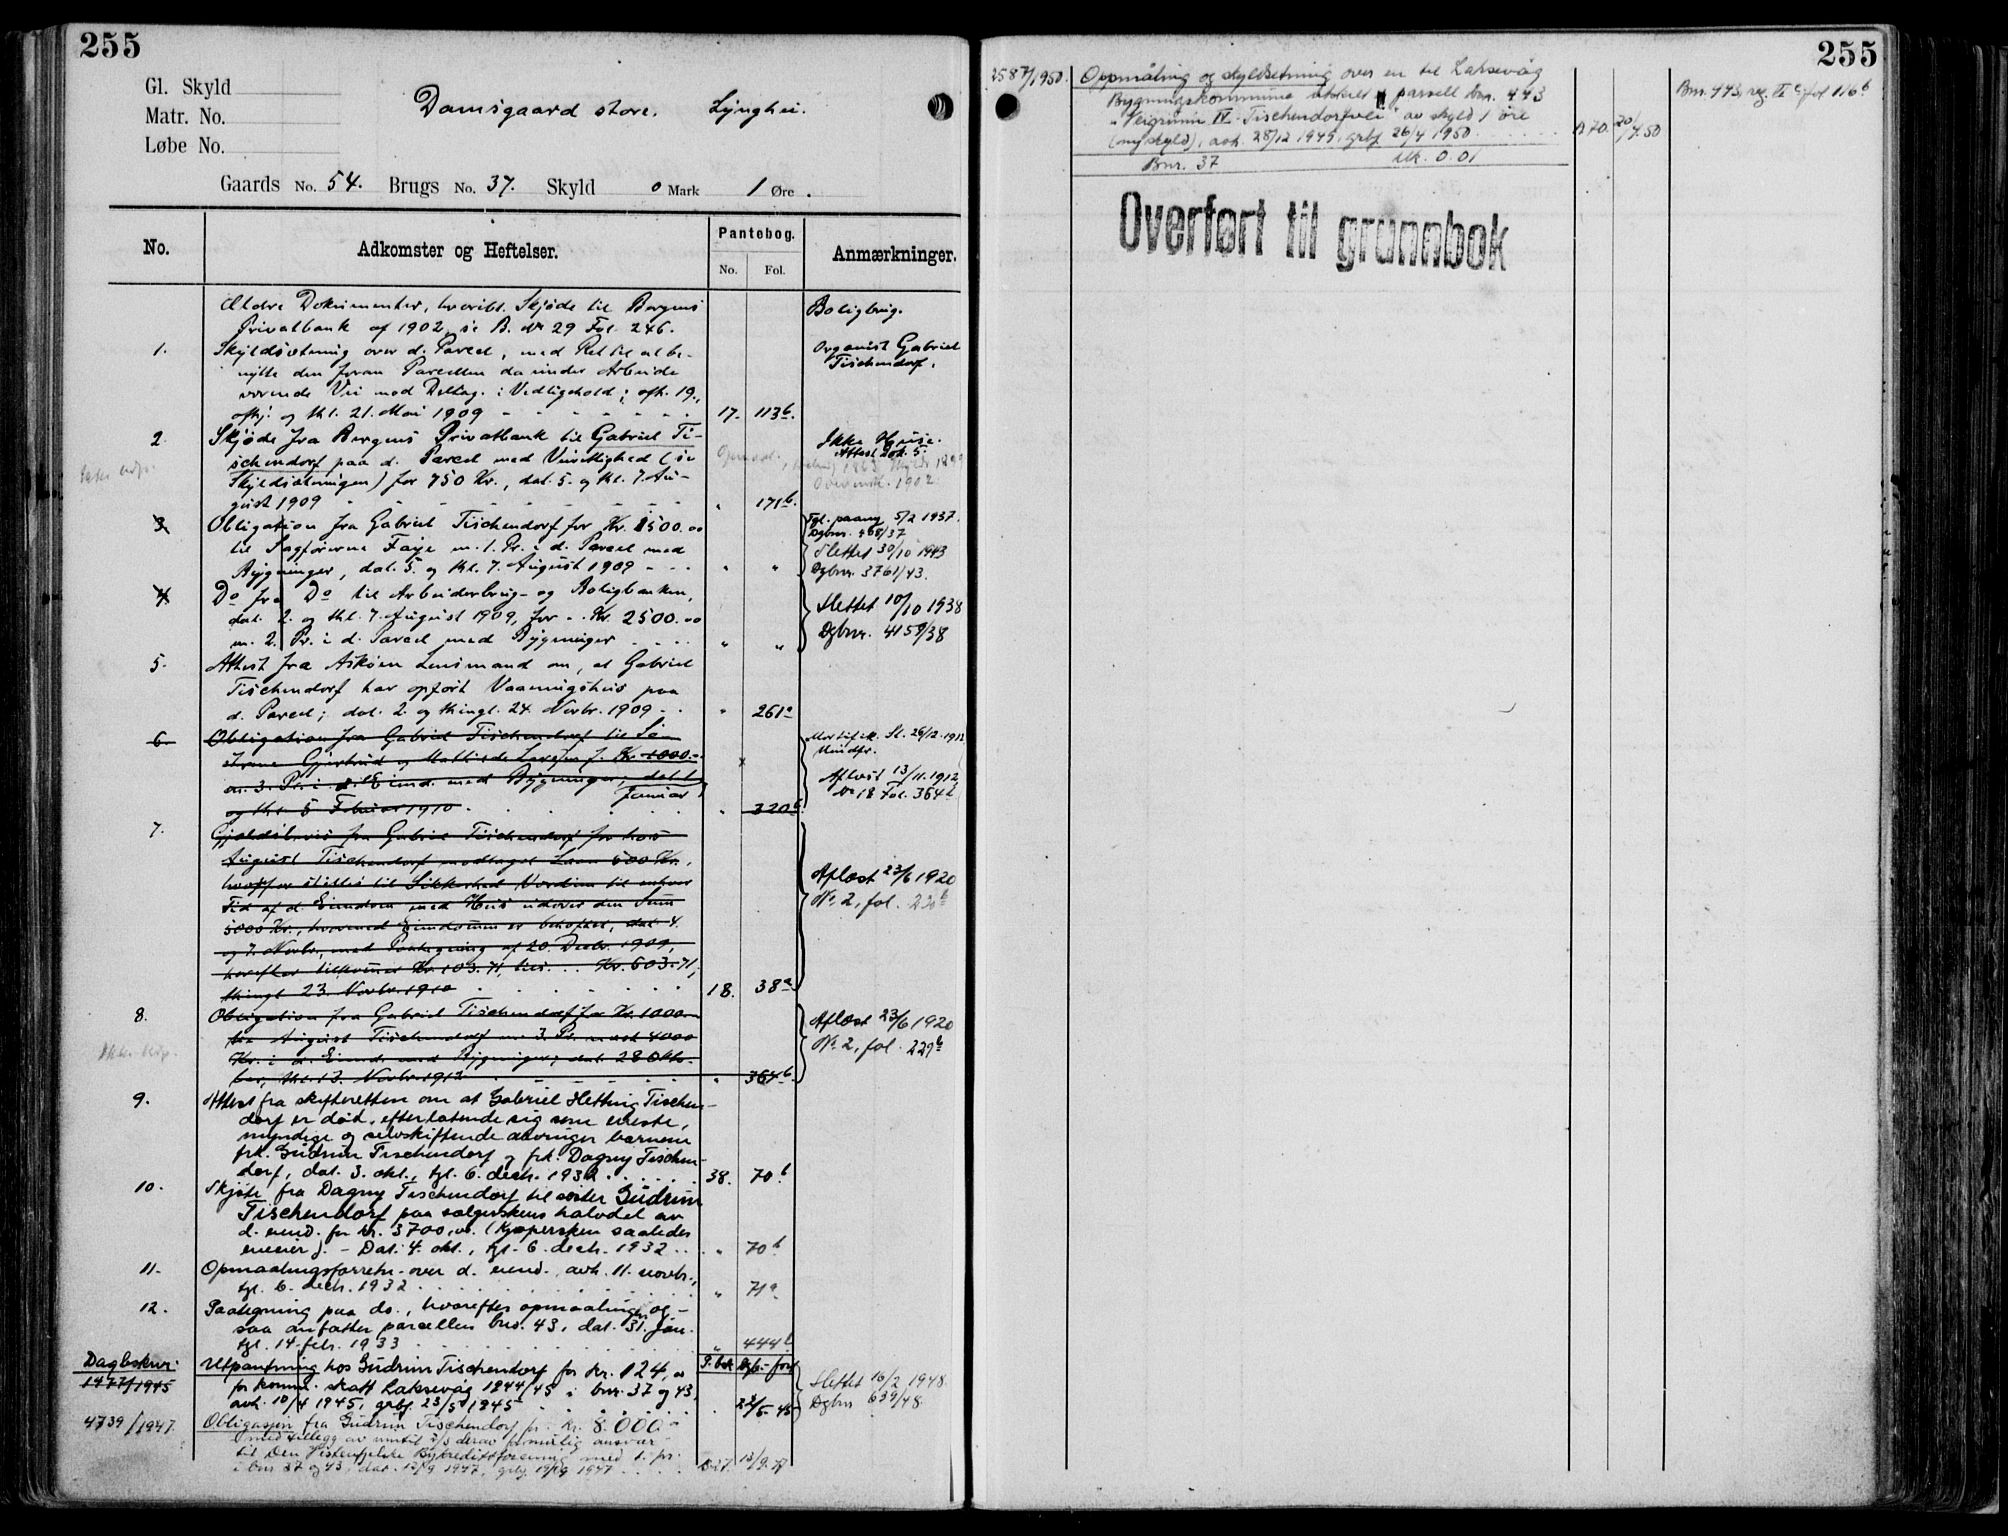 255
Gl. Skyld
Matr. No.
Løbe No.
Damsgaard store. Lynghei.
Gaards No. 54. Brugs No. 37. Skyld 0 Mark 1 Øre.
No. Adkomster og Heftelser. Pantebog. No. Fol. Anmærkninger.
Ældre Dokumenter, hvoribl. Skjøde til Bergens Boligbrug.
Privatbank af 1902, se B. No 29 Fol. 246.
1. Skyldsætning over d. Parcel, med Ret til at be- Organist Gabriel
nytte den foran Parcellen da under Arbeide Tischendorf.
værende Vei mod Deltag. i Vedligehold; afh. 19.,
afhj. og thl. 21. Mai 1909 17. 113b.
2. Skjøde fra Bergens Privatbank til Gabriel Ti- Ikke Huse.
schendorf paa d. Parcel med Veirettighed (se Attest Dok. 5.
Skyldsætningen) for 750 Kr., dat. 5. og thl. 7. Au-
gust 1909 " 171b.
3. Obligation fra Gabriel Tischendorf for Kr. 1500.00 Tgl. paany 5/2 1937.
til Sagførerne Faye m. 1. Pr. i d. Parcel med Dgbnr. 468/37 Slettet 30/10 1943
Bygninger, dat. 5. og thl. 7. August 1909 " " Dgbnr. 3761/43.
4. Do fra Do til Arbeiderbrug- og Boligbanken, Slettet 10/10 1938
dat. 2. og thl. 7. August 1909, for Kr. 2500.00 Dgbnr. 4159/38
m. 2. Pr. i d. Parcel med Bygninger " "
5. Attest fra Askøen Lensmand om, at Gabriel
Tischendorf har opført Vaaningshus paa
d. Parcel; dat. 2. og thingl. 24. Novbr. 1909 " 261a
6. Obligation fra Gabriel Tischendorf til Mortifik. St. 26/12 1912
Gjertrud og Mathilde f. Kr. 1000.-
m. 3. Pr. i d. Eiend. med Bygninger; dat. 1. Januar Aflæst 13/11.1912
og thl. 5 Februar 1910. " 320 No 18 Fol. 364b
7. Gjældsbevis fra Gabriel Tischendorf for hos
August Tischendorf modtaget Laan 500 Kr.,
hvorfor stilles til Sikkerhed Værdien til enhver Aflæst 23/6 1920
Tid af d. Eiendom med Hus udover den Sum No. 2, fol. 230b
5000 Kr., hvormed Eiendommen er behæftet, dat. 4.
og 7. Novbr., med Paategning af 20. Decbr. 1909,
hvorefter tilkommer Kr. 103.71, tils. Kr. 603.71,
thingl. 23. Novbr. 1910 18. 38a
8. Obligation fra Gabriel Tischendorf for Kr. 1000 Aflæst 23/6 1920
til August Tischendorf m. 3. Pr. næst 4000 No. 2, fol. 229b
Kr. i d. Eiend. med Bygninger; dat. 28 Okto-
ber, thl. 13. Novbr. 1912 " 364b.
9. Attest fra skifteretten om at Gabriel Hettwig Tischen-
dorf er død, efterlatende sig som eneste,
myndige og selvskiftende arvinger barnene
frk. Gudrun Tischendorf og frk. Dagny Tischen-
dorf, dat. 3. okt., tgl. 6. decbr. 1932 38. 70b
10. Skjøte fra Dagny Tischendorf til søster Gudrun
Tischendorf paa sælgerskens halvdel av
d. eiend. for kr. 3700,00. (Kjøpersken saaledes
eneeier). - Dat. 4. okt., tgl. 6. decbr. 1932 " 70b
11. Opmaalingsforretn. over d. eiend., avh. 11. novbr.,
tgl. 6. decbr. 1932 " 71a
12. Paategning paa do., hvorefter opmaalingen og-
saa omfatter parcellen bnr. 43, dat. 31. jan.
tgl. 14. febr. 1933 " 444b
Dagboknr. Utpantning hos Gudrun Tischendorf for kr. 124,00 P. bok Dgb.
1477/1945 for komm. skatt Laksevåg 1944/45 i bnr. 37 og 43, Slettet 16/2 1948.
avh. 10/4 1945, grbf. 23/5 1945 24/5-45 Dgbnr 639/48.
4739/1947. Obligasjon fra Gudrun Tischendorf for kr. 8.000.-
med tillegg av inntil 1/5 derav personlig ansvar
til Den Vestenfjelske Bykredittforening med 1. pr.
i bnr 37 og 43, dat. 12/9 1947, grbf. 19/9 1947 B 27. 13/9.47
255
2587/1950. Oppmåling og skyldsetning over en til Laksevåg Bnr. 443, reg. II c fol 116b
Bygningskommune utskilt parsell bnr. 443
"Veigrunn IV Tischendorfvei" av skyld 1 øre
(ny skyld), avh. 28/12 1949, grbf. 26/4 1950. A 70. 20/4.50
Bnr. 37 Mk. 0.01
Overført til grunnbok